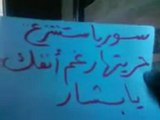 سوريا ستنتزع
حريتها رغم أنفك
يا بشار